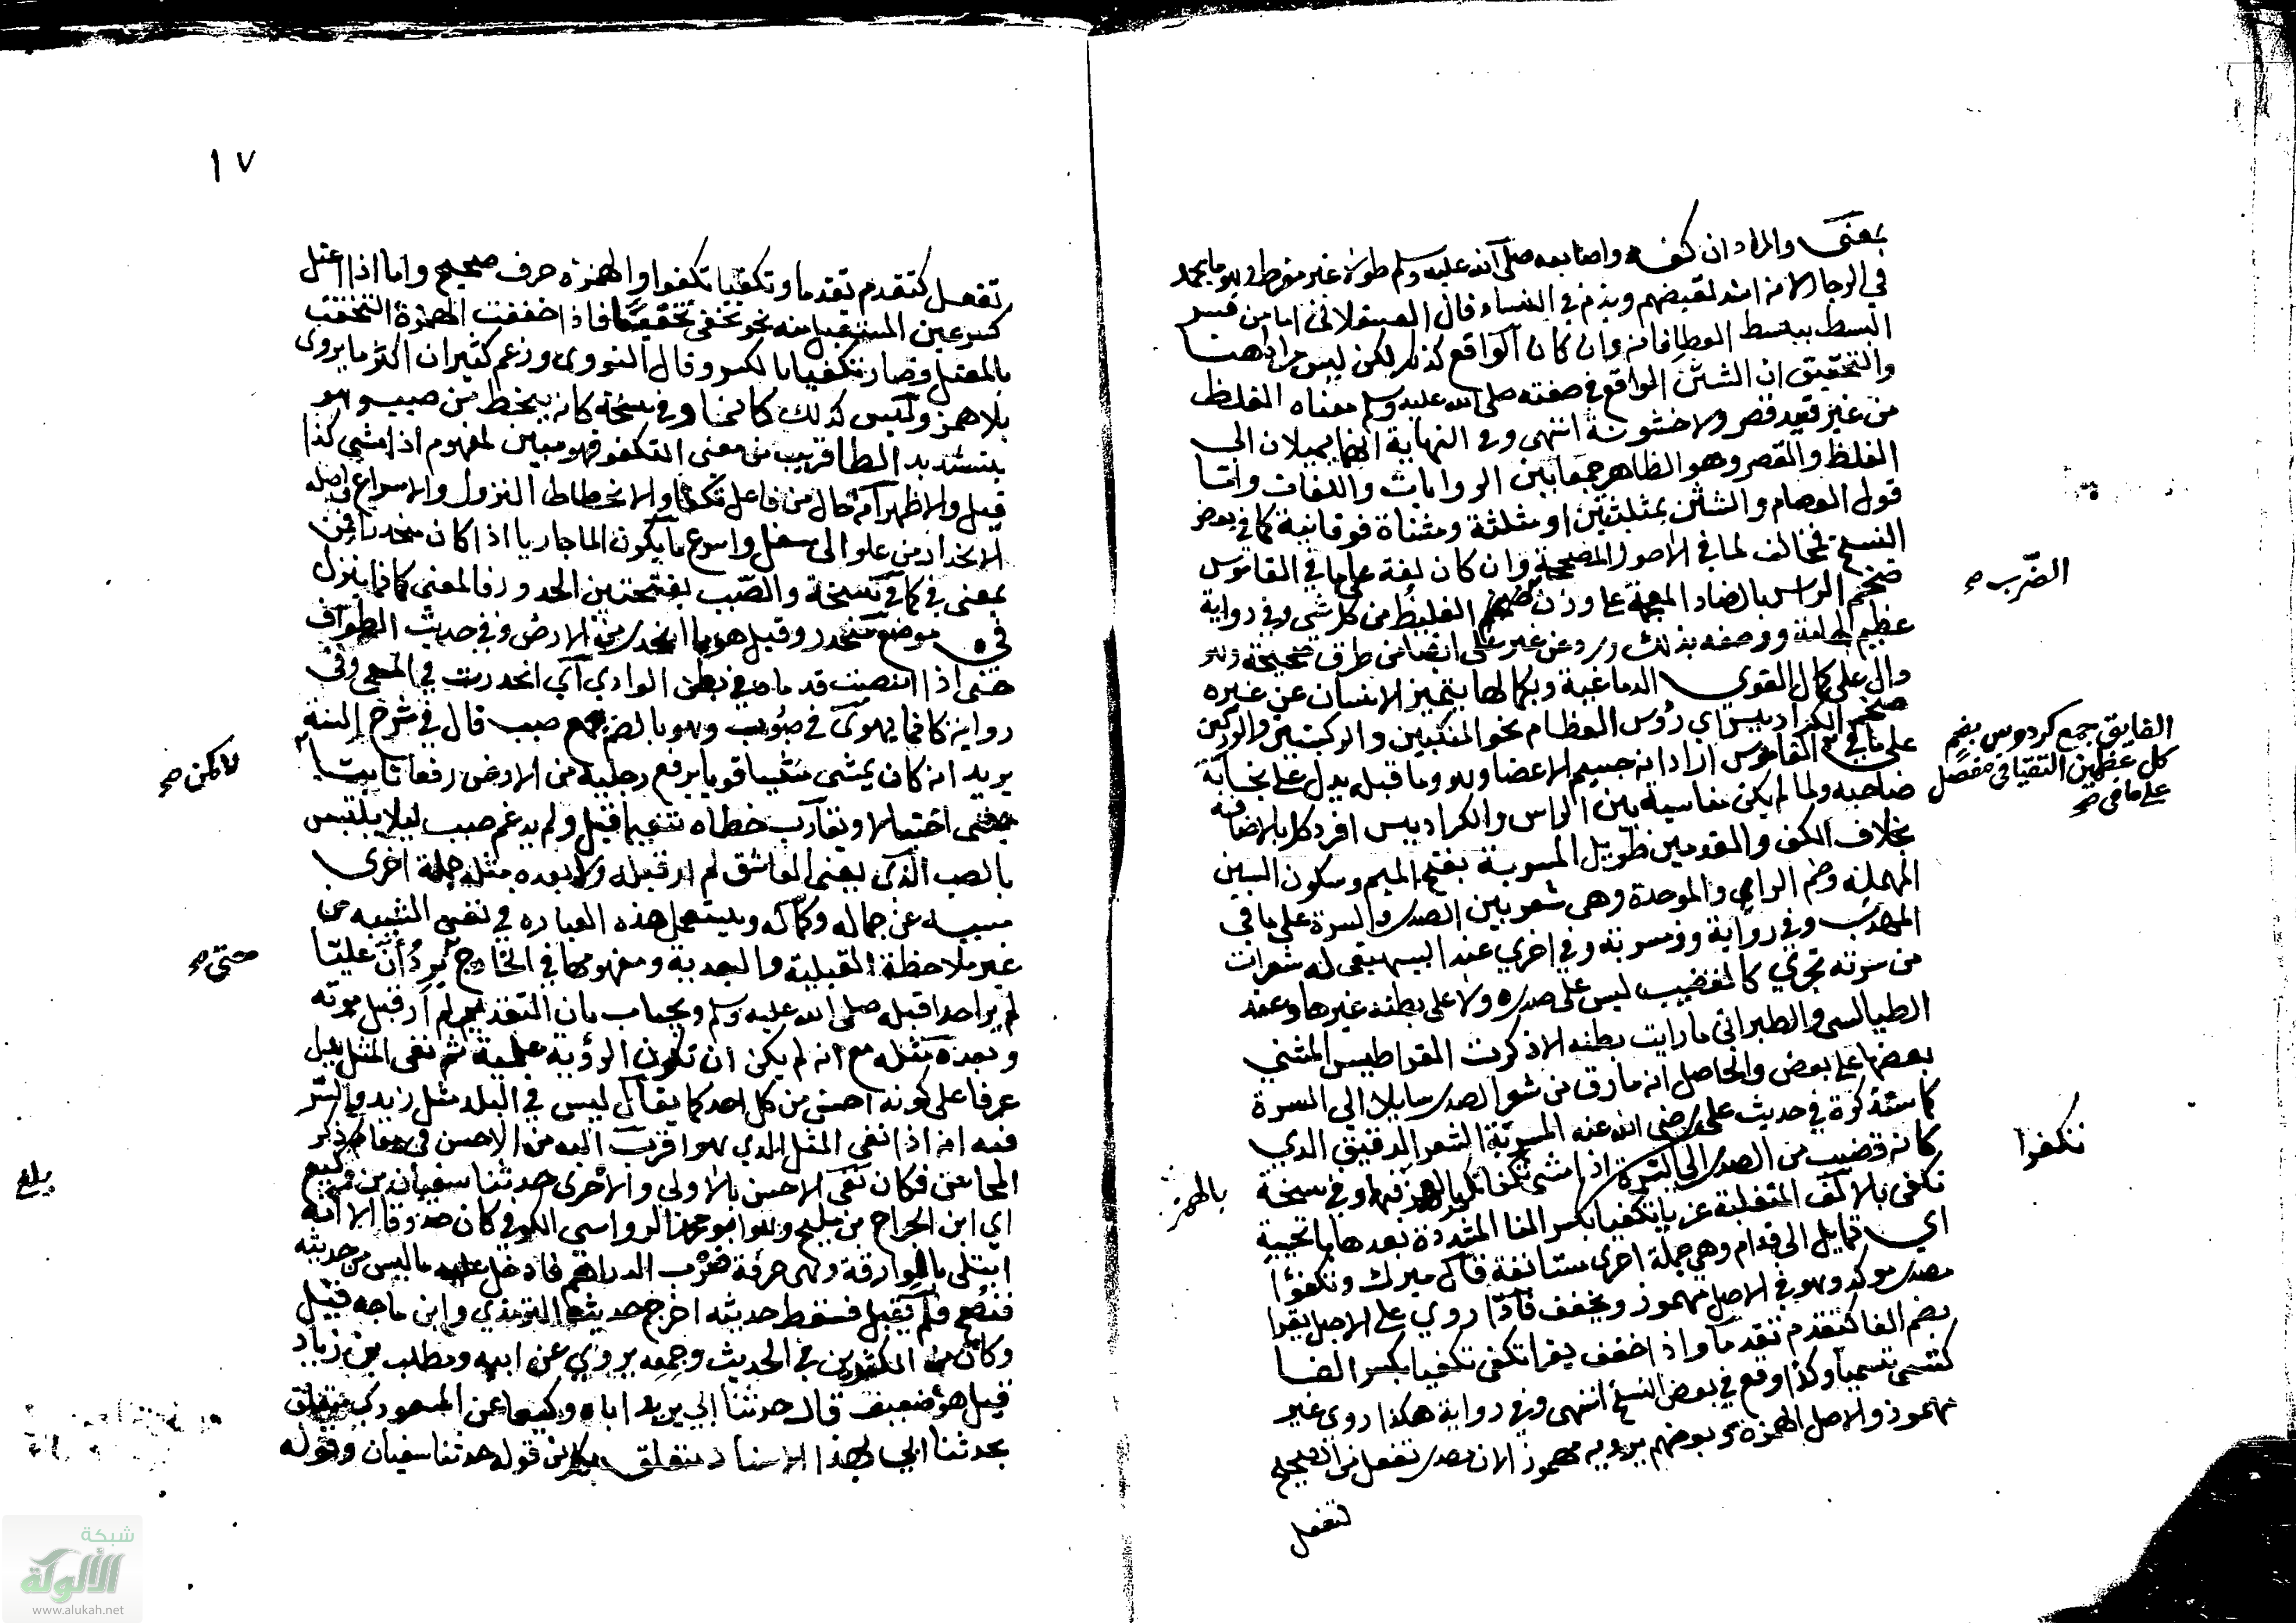 بمعنى والمراد ان كفه واصابعه صلى الله عليه وسلم طولا غير مفرط وهو مما يحمد
في الرجال لانه اشد لقبضهم ويذم في النساء قال العسقلاني اما من فسر
البسط ببسط العطا فانه وان كان الواقع كذلك لكن ليس مرادا هنا
والتحقيق ان الشثن الواقع في صفته صلى الله عليه وسلم معناه الغلظ
من غير قيد قصر ولا خشونة انتهى وفي النهاية انهما يميلان الى
الغلظ والقصر وهو الظاهر جمعا بين الروايات واللغات واما
قول العصام والشثن بمثلثتين او مثلثة ومثناة فوقانية كما في بعض
النسخ فخالف لما في الاصول المصححة وان كان لغة على ما في القاموس
ضخم الراس بالضاد المعجمة على وزن الغليظ من كل شي وفي رواية
الضرب صح
عظيم الهامة ووصفه بذلك ورد عن غير علي ايضا من طرق صحيحة وهو
دال على كمال القوى الدماغية وبكمالها يتميز الانسان عن غيره
ضخم الكراديس اي رؤس العظام نحو المنكبين والركبتين والوركين
على ما في القاموس اراد انه جسيم الاعضا وهو وما قبله يدل على نجابة
الفايق جمع كردوس بضم
كل عظمين التقيا في مفصل
على ما في صح
صاحبه ولما لم يكن مناسبة بين الراس والكراديس افرد كلا بالاضافة
بخلاف الكف والقدمين طويل المسربة بفتح الميم وسكون السين
المهملة وضم الراي والموحدة وهي شعر بين الصدر والسرة على ما في
المهذب وفي رواية ذو مسربة وفي اخري عند البيهقي له شعرات
من سرته تجري كالقضيب ليس على صدره ولا على بطنه غيرها وعند
الطيالسي والطبراني ما رايت بطنه الا ذكرت القراطيس المثني
بعضها على بعض والحاصل انه مارق من شعر الصدر سايلا الي السرة
كما ستذكره في حديث علي رضي الله عنه المسربة الشعر الدقيق الذي
كانه قضيب من الصدر الى السرة اذا مشى تكفا تكفوا بالهمز فيهما وفي نسخة
تكفوا
بالهمز
تكفى بالالف المنقلبة عن يا تكفيا بكسر الفا المشددة بعدها يا تحتية
اي تمايل الى قدام وهي جملة اخرى مستانفة قال ميرك وتكفؤا
مصدر موكد وهو في الاصل مهموز ويخفف فاذا روي على الاصل يقرا
بضم الفا كتقدم تقدما واذا خفف يقرا تكفى تكفيا بكسر الفا
كتسمى تسميا وكذا وقع في بعض النسخ انتهى وفي رواية هكذا روي غير
مهموز والاصل الهمزة وبعضهم يرويه مهموزا لان مصدر تفعل من الصحيح
تفعل
١٧
تفعل كتقدم تقدما وتكفيا تكفوا والهمزة حرف صحيح واما اذا اعتل
كسر عين المستقبل منه نحو تخفى تخفيا فاذا خففت الهمزة التحقت
بالمعتل وصار تكفيا بالكسر وقال النووي وزعم كثير ان اكثر ما يروى
بلا همز وليس كذلك كانما وفي نسخة كانه ينحط من صبب وهو
بتشديد الطا قريب من معنى التكفو فهو مبين لمفهوم اذا مشى كذا
قيل والاظهر انه حال من فاعل تكفا والانحطاط النزول والاسراع واصله
الانحدار من علو الى سفل واسرع ما يكون الما جاريا اذا كان منحدرا فمن
بمعنى في كما في نسخة والصبب بفتحتين الحدور فالمعنى كانما ينزل
في موضع منحدر وقيل هو ما انحدر من الارض وفي حديث الطواف
حتى اذا انصبت قدماه في بطن الوادي اي انحدرت في المسعى وفي
رواية كانما يهوى في صبوب وهو بالضم جمع صبب قال في شرح السنة
يريد انه كان يمشي مشيا قويا يرفع رجليه من الارض رفعا ثابتا
لا كمن صح
يمشي اختيالا ويقارب خطاه تنعما قيل ولم يدغم صبب ليلا يلتبس
بالصب الذي بمعنى العاشق لم ار قبله ولا بعده مثله جملة اخرى
مبينة عن جماله وكماله ويستعمل هذه العبارة في نفي الشبيه من
غير ملاحظة القبلية والبعدية ومفهومها في الخارج يرد ان عليا
حتى صح
لم ير احدا قبله صلى الله عليه وسلم ويجاب بان التقدير لم ار قبل موته
وبعده مثله مع انه لم يكن ان تكون الرؤية علمية ثم نفي المثل يدل
عرفا على كونه احسن من كل احد كما يقال ليس في البلد مثل زيد والسر
فيه انه اذا نفى المثل الذي هو اقرب اليه من الاحسن في مقام ذكر
المحاسن فكان نفي الاحسن بالاولى والاحرى حدثنا سفيان بن وكيع
بلغ
اي ابن الجراح بن مليح وهو ابو محمد الرواسي الكوفي كان صدوقا الا انه
ابتلى بالوراقة وهي حرفة ضرب الدراهم فادخل عليه ما ليس من حديثه
فنصح فلم يقبل فسقط حديثه اخرج حديثه الترمذي وابن ماجه قيل
وكان من المكثرين في الحديث وجمعه يروي عن ابيه ومطلب بن زياد
قيل هو ضعيف قال حدثنا ابي يريد اباه وكيعا عن المسعودي متعلق
بحدثنا ابي بهذا الاسناد متعلق بكل من قوله حدثنا سفيان وقوله
شبكة
الألوكة
www.alukah.net